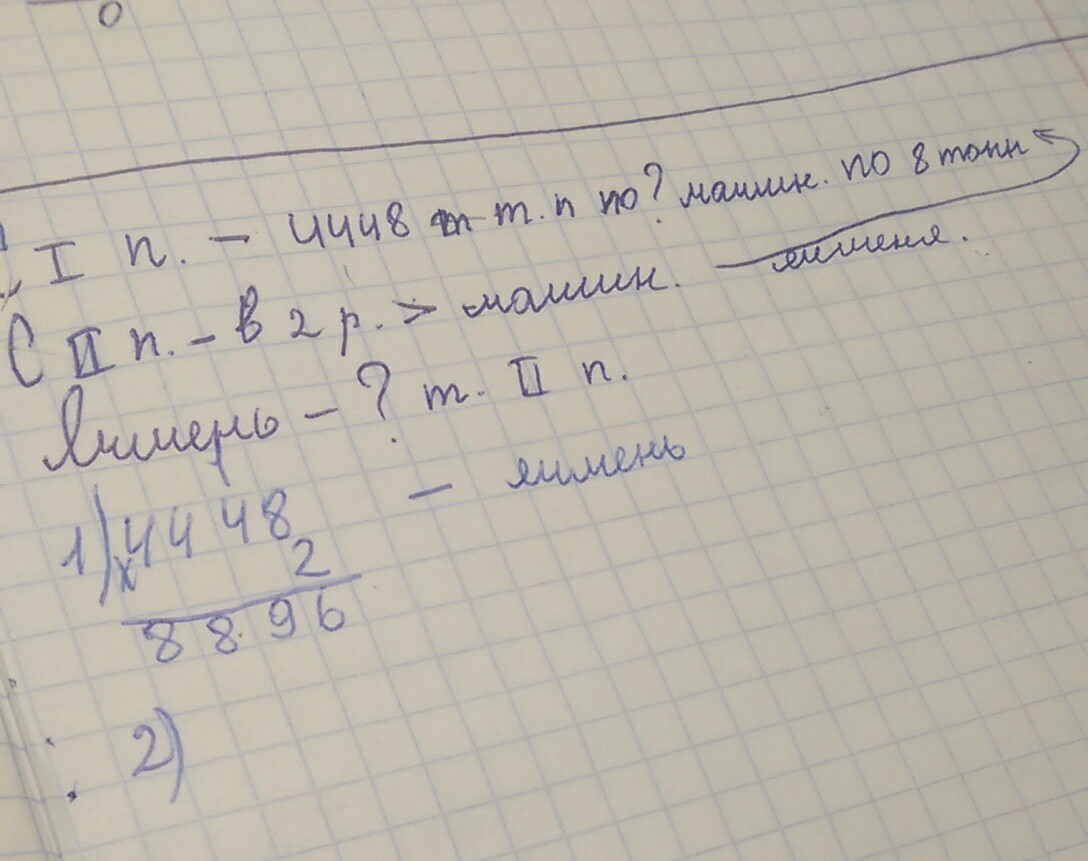 0
I п. - 4448 т т. п по ? машин. по 8 тонн
С II п. - в 2 р. > машин. - ячменя.
Ячмень - ? т. II п.
1) 4448 - ячмень
х 2
8896
2)